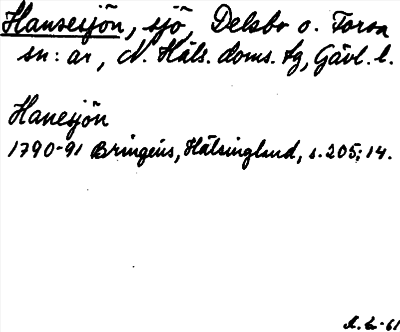 Hansesjön, sjö, Delsbo o. Forsa
sn:ar, N. Häls. doms. tg, Gävl. l.
Hanesjön
1790-91 Bringéus, Hälsingland, s. 205; 14.